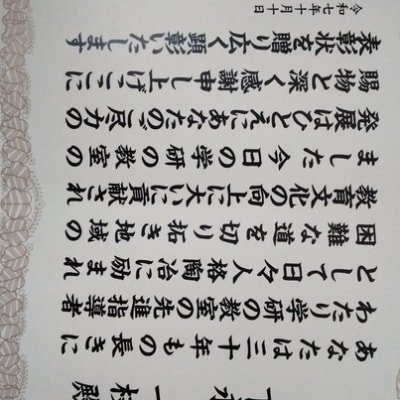 殿
あなたは三十年もの長きに
わたり学研の教室の先進指導者
として日々人格陶冶に励まれ
困難な道を切り拓き地域の
教育文化の向上に大いに貢献され
ました今日の学研の教室の
発展はひとえにあなたのご尽力の
賜物と深く感謝申し上げここに
表彰状を贈り広く顕彰いたします
令和七年十月十日